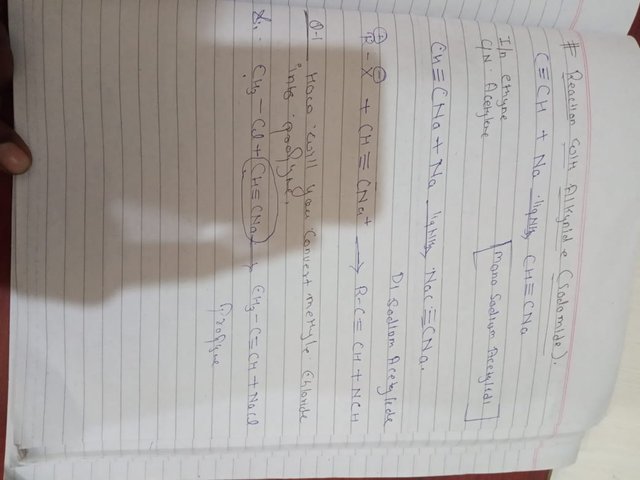 # Reaction with Alkynide (Sodamide).
C≡CH + Na liqNH3→ CH≡CNa
I/n ethyne [Mono Sodium Acetylide]
C/N - Acetylene
CH≡CNa + Na liqNH3→ NaC≡CNa.
Di Sodium Acetylide
R-X + CH≡CNa+ → R-C≡CH + NCH
Q-1 How will you convert methyle Chloride
into propyne.
CH3-Cl + CH≡CNa → CH3-C≡CH + NaCl
Propyne